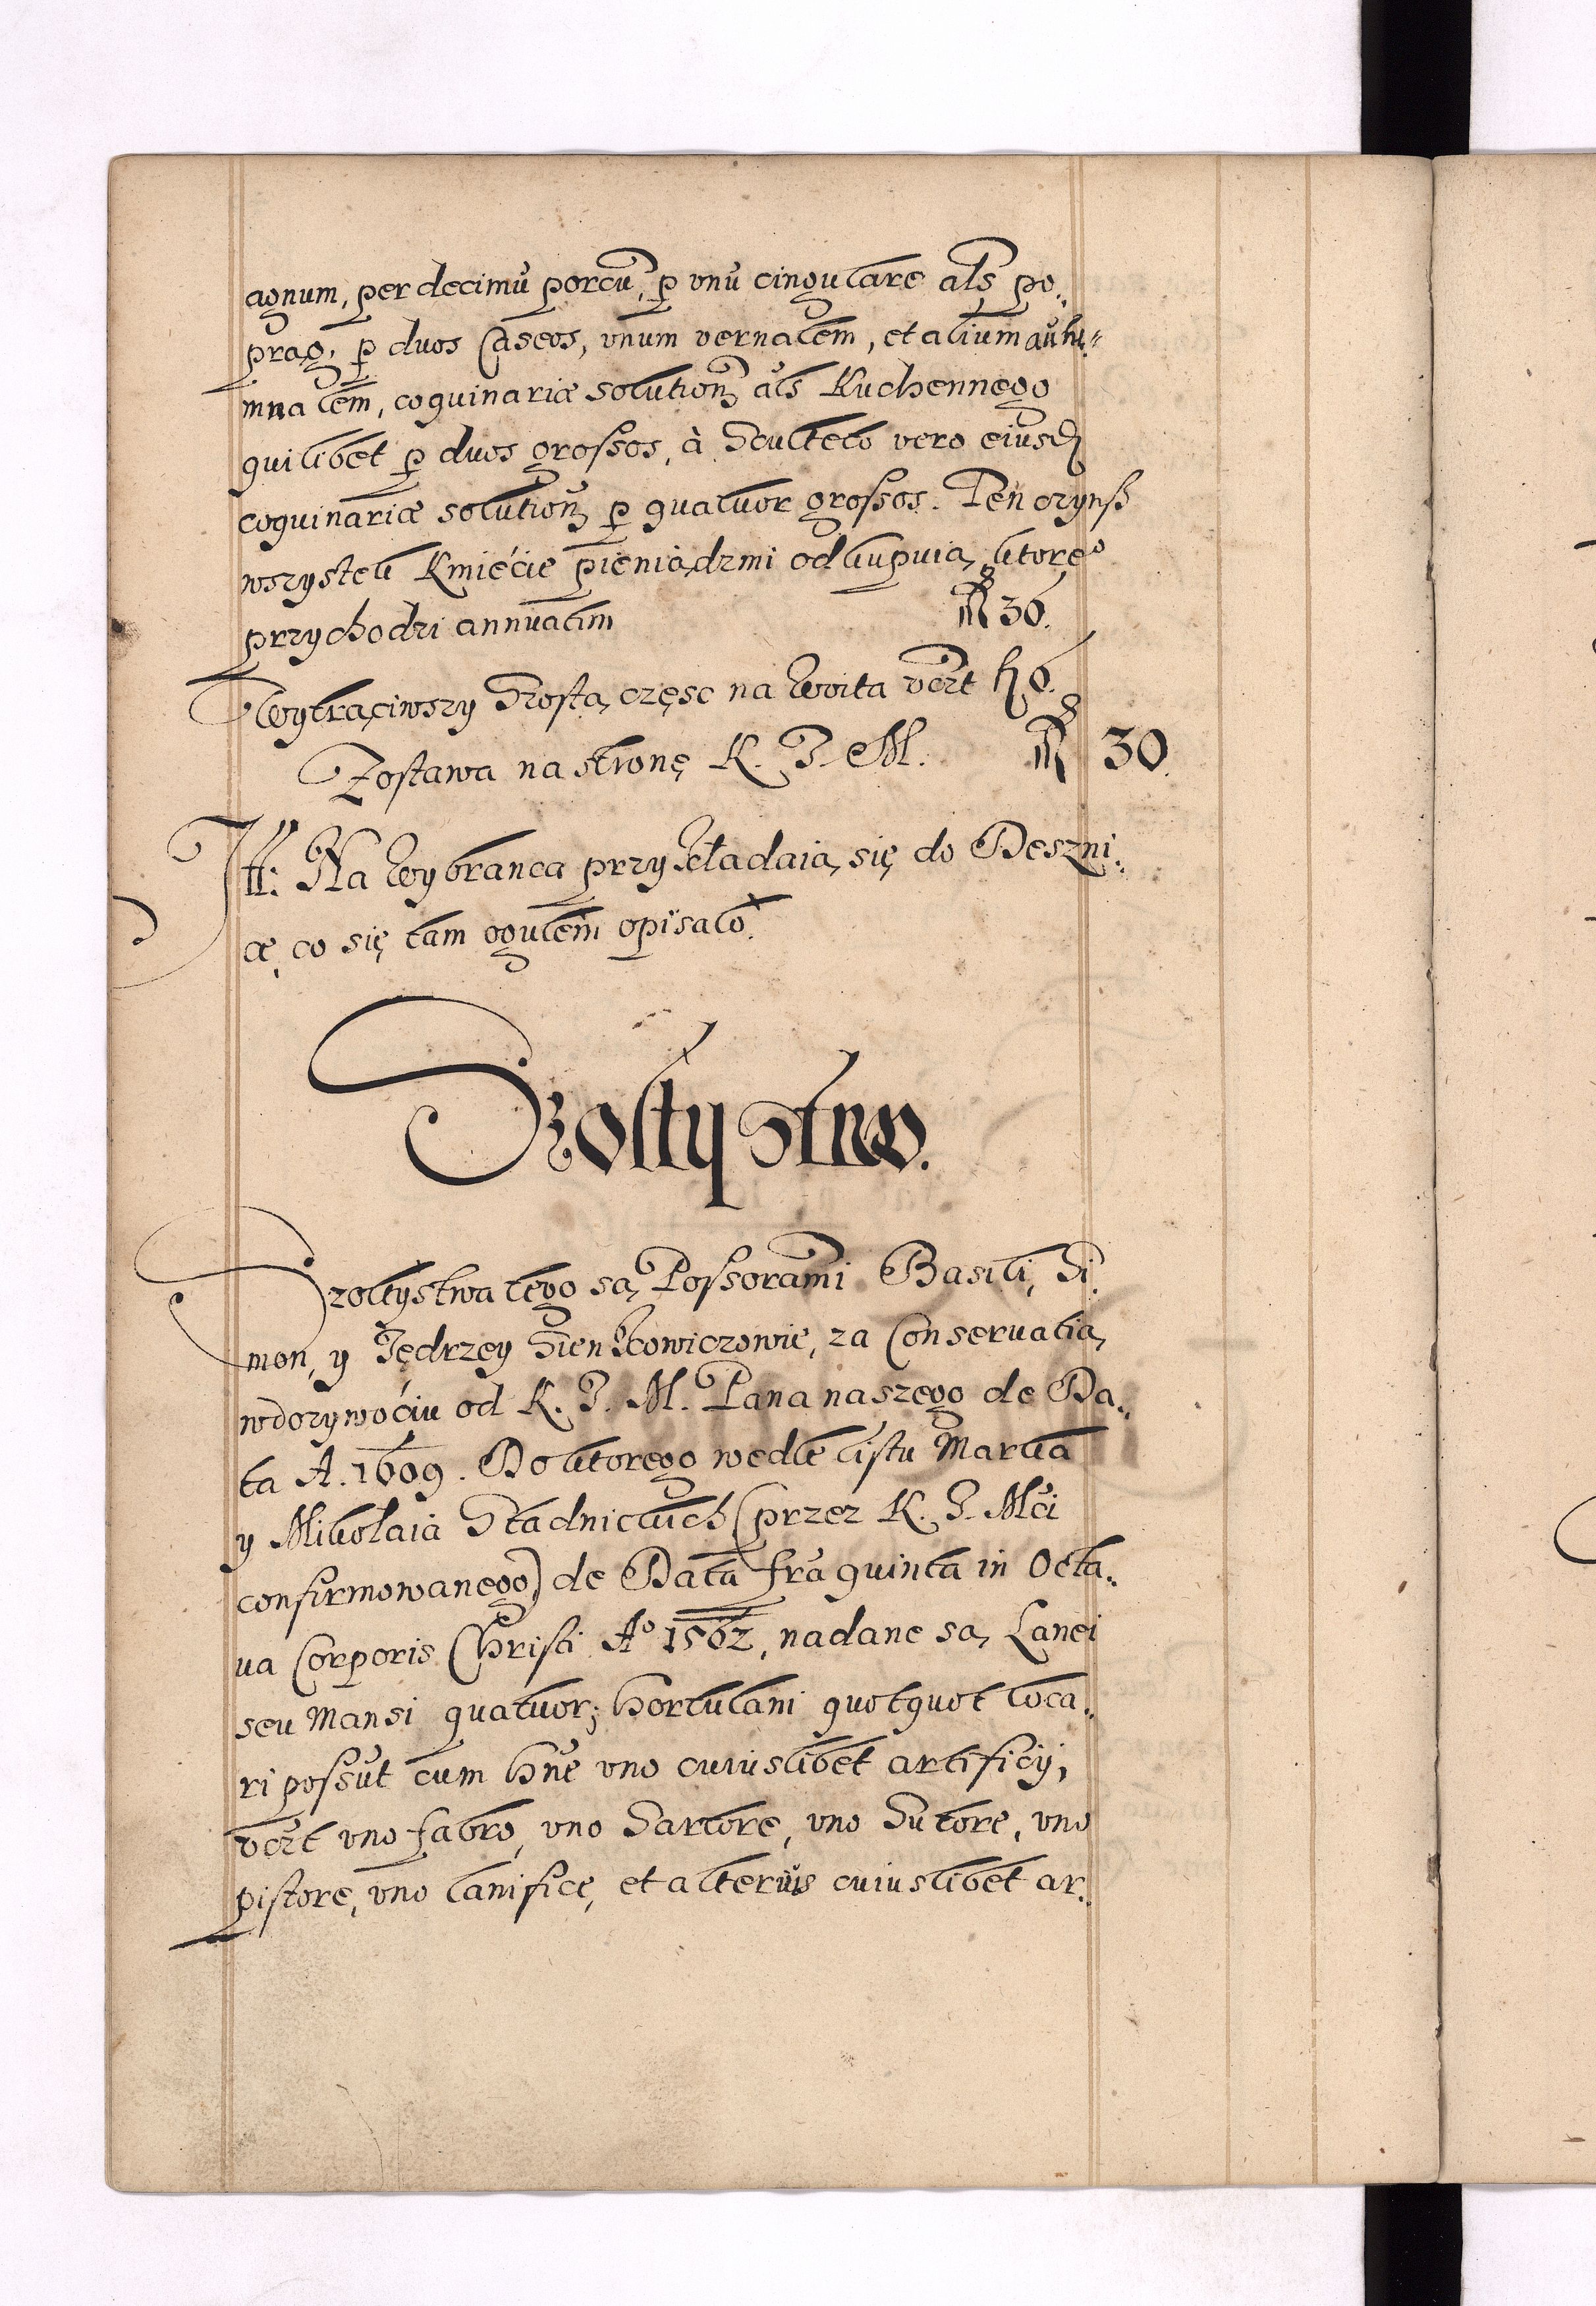 agnum, per decimũ porcũ, p̱ vnũ cingulare al̃s po„
prąg, p̱ duos Caseos, vnum vernalem, et alium autu„
mnalem, coquinariæ solutioñ al̃s Kuchennego
quilibet p̱ duos grossos, à Sculteto vero eiusd
coquinariæ solutioñ p̱ quatuor grossos. Ten czynsz
wszystek Kmiécie pieniądzmi odkupuią, ktore°
przychodzi annuatim 36.
Wytrąciwszy Szostą częsc na Woita vczt 6.
Zostawa na stronę K. J. M. 30.
Itt: Na Wybranca przykładaią się do Deszni„
ce, co się tam ogułem opisało.
Szołtystwo.
Szołtystwa tego są Possorami Basili, Si„
mon, y Jędrzey Sienkowiczowie, za Conseruatią
w dozywoćiu od K. J. M. Pana naszego de Da„
ta A. 1609. Do ktorego wedle listu Marcina
y Mikołaia Stadnickich (przez K. J. Mći
confirmowanego) de Data fr̃a quinta in Octa„
ua Corporis Christi A° 1562, nadane są Lanei
seu Mansi quatuor; hortulani quotquot loca„
ri possũt cum hñe vno cuiuslibet artificij,
vczt vno fabro, vno Sartore, vno Sutore, vno
pistore, vno lanifice, et alterius cuiuslibet ar„